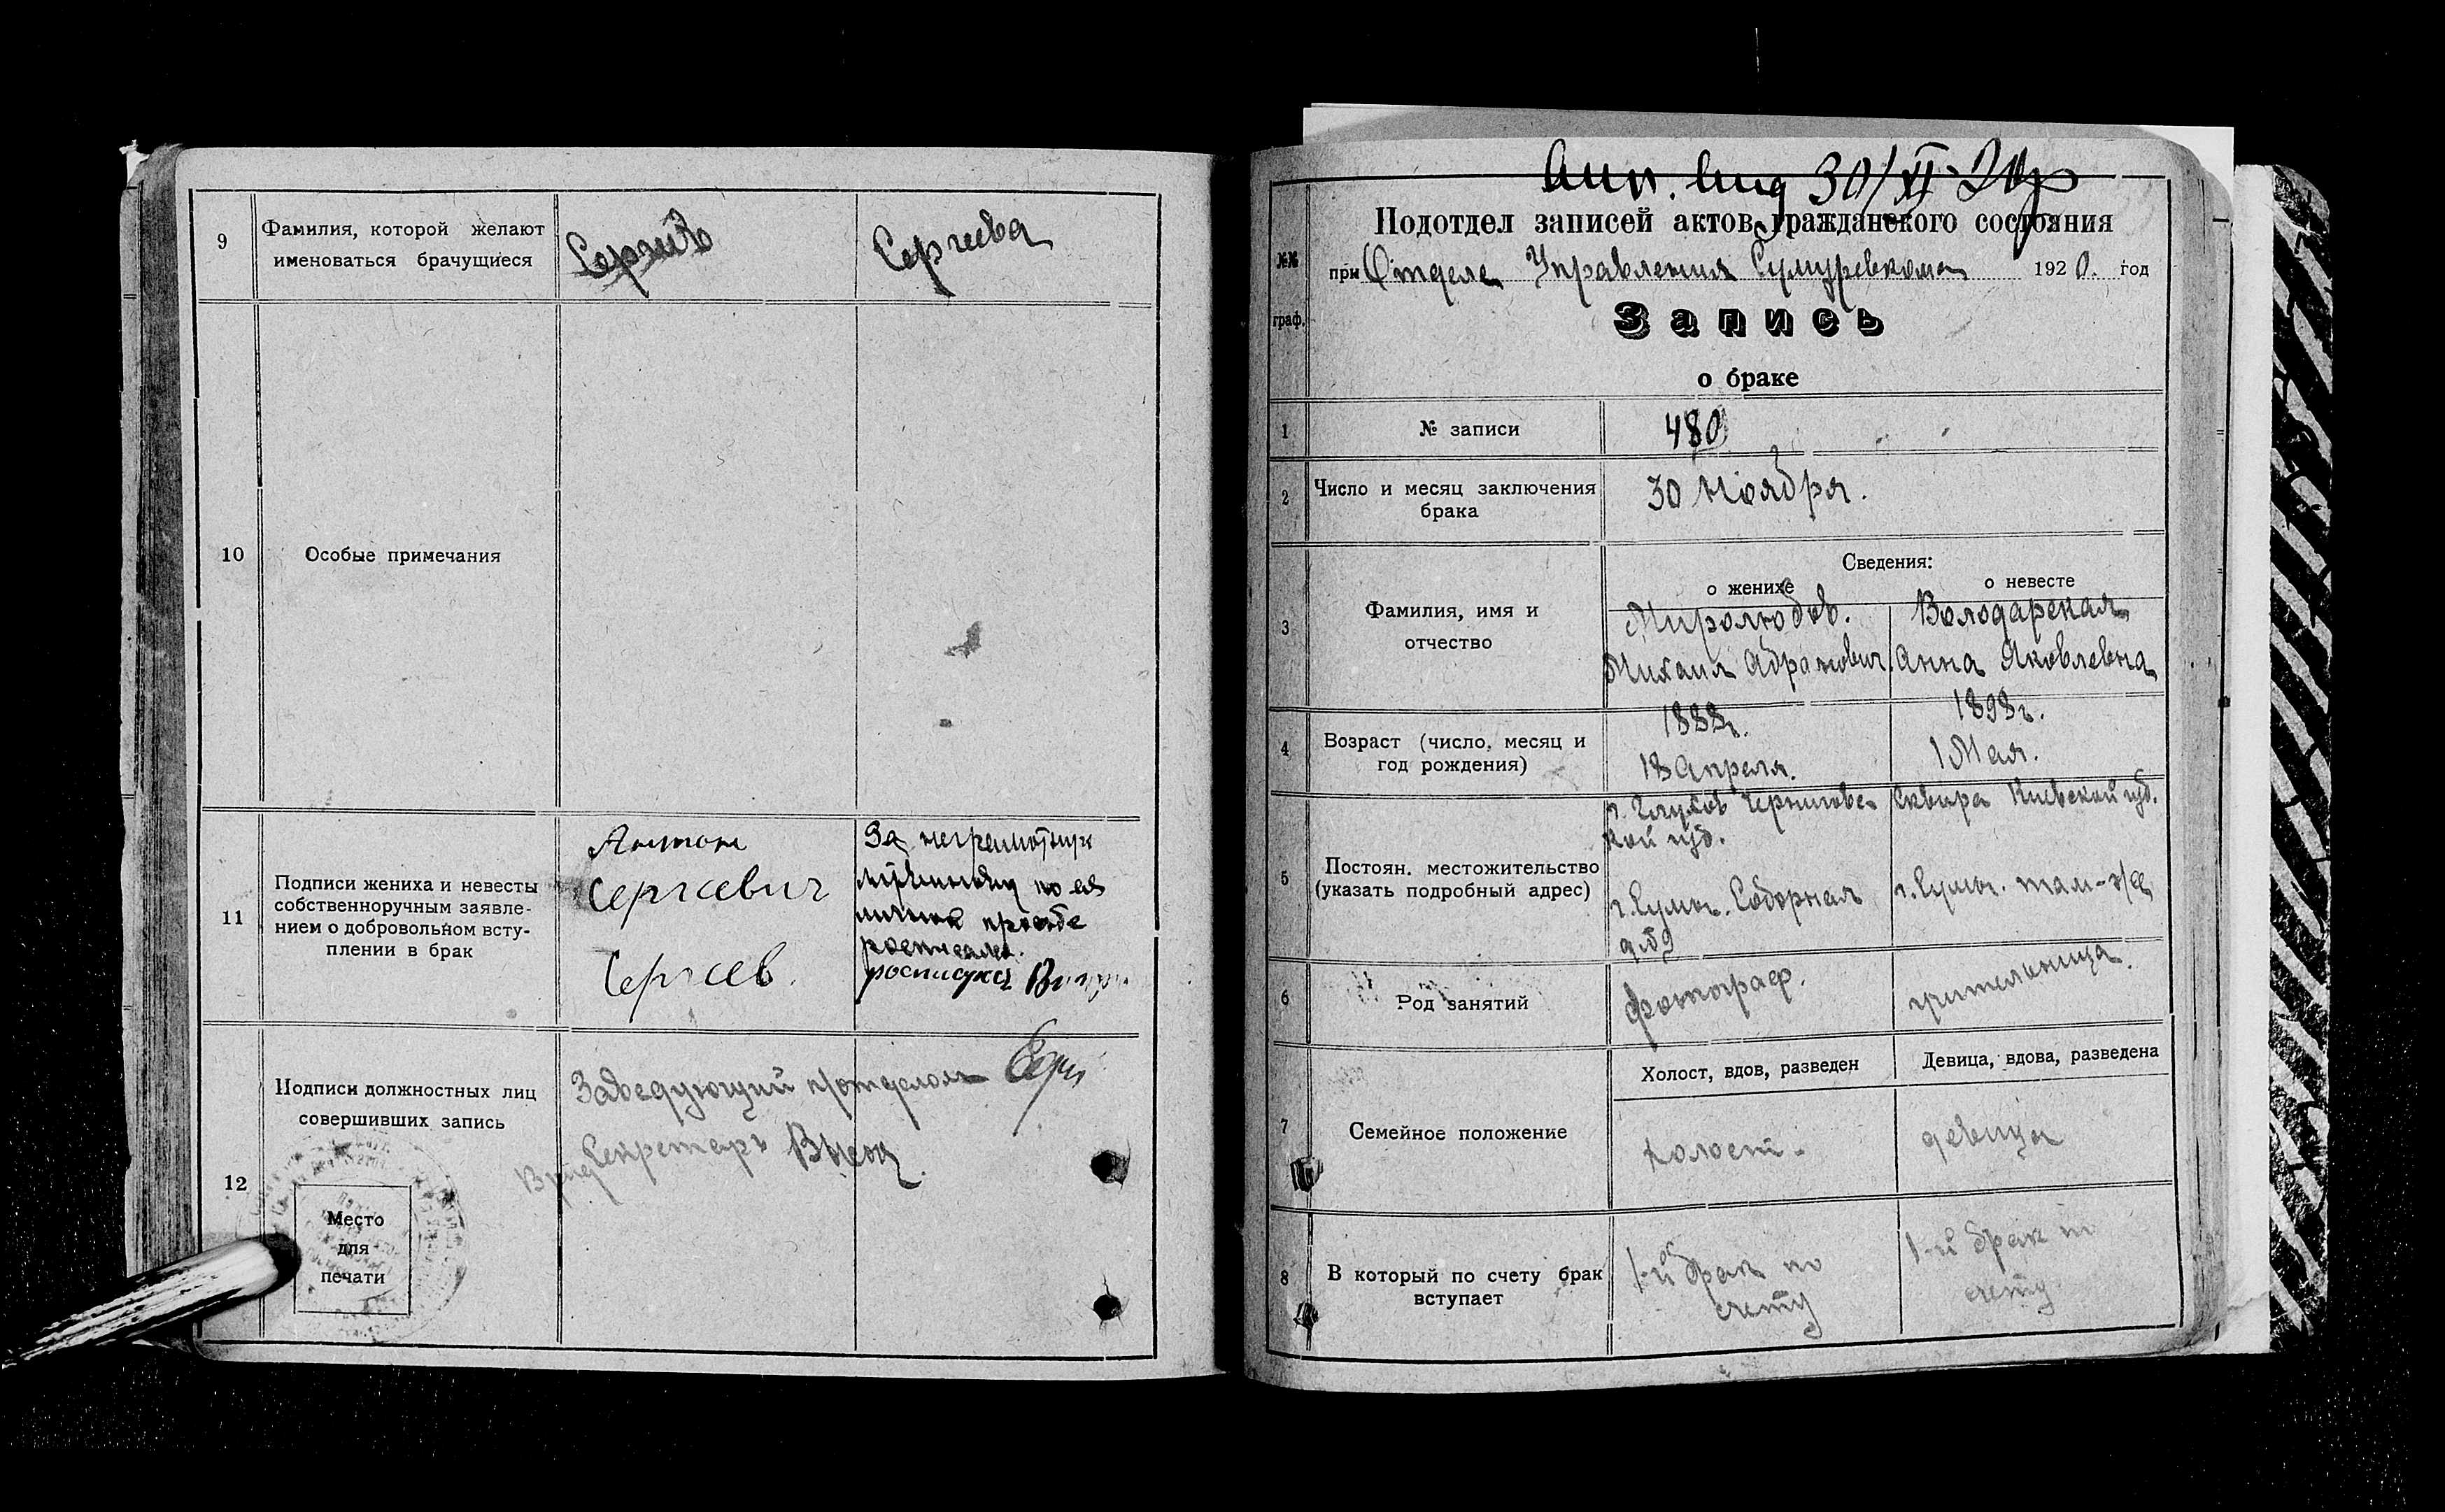 9
Фамилия, которой желают
именоваться брачущиеся
Сергеев
Сергиева
10
Особые примечания
11
Подписи жениха и невесты
собственноручным заявле-
нием о добровольном всту-
плении в брак
Антон
Сергеевич
Сергеев.
За неграмотную
по ея
личной просьбе
росписался
12
Подписи должностных лиц
совершивших запись
Заведующий п/отделом
Врид Секретарь
Место
для
печати
30/XI-20г
Подотдел записей актов гражданского состояния
№№
граф.
при Отделе Управления Сумуревкома 1920. год
Запись
о браке
1
№ записи
480
2
Число и месяц заключения
брака
30 Ноября.
Сведения:
о женихе
о невесте
3
Фамилия, имя и
отчество
Миролюбов.
Михаил Абрамович
Володарская
Анна Яковлевна
4
Возраст (число, месяц и
год рождения)
1888г.
18 Апреля.
1898г.
1 Мая.
5
Постоян. местожительство
(указать подробный адрес)
г. Глухов Черниговс
кой губ.
г. Сумы. Соборная
д. № 9
Сквира Киевской губ.
г. Сумы. там-же
6
Род занятий
фотограф.
учительница.
7
Семейное положение
Холост, вдов, разведен
Девица, вдова, разведена
холост.
девица
8
В который по счету брак
вступает
1-й брак по
счету
1-й брак по
счету